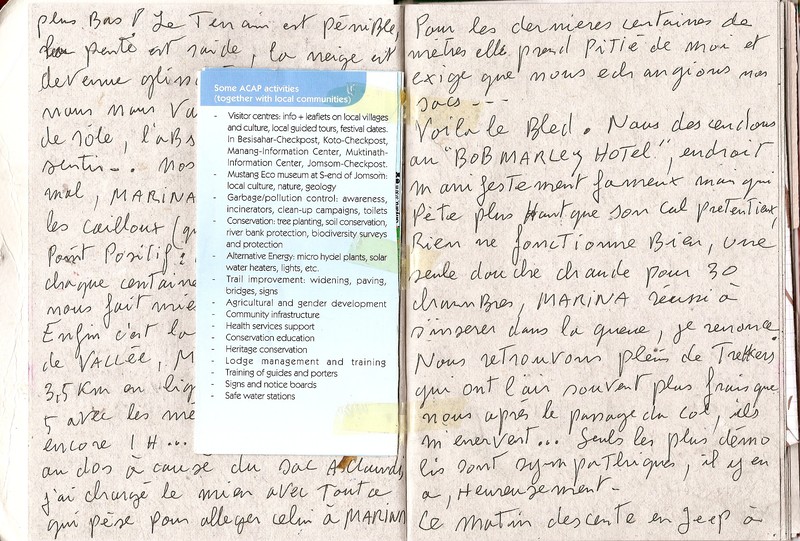 plus Bas ! Le Terrain est pénible,
la pente est raide, la neige est
devenue gliss
nous nous va
de sole, l'abs
sentir... Nos
mal, MARINA
les cailloux (q
Point Positif:
chaque centaine
nous fait mieu
Enfin c'est la
de VALLÉE, M
3,5 Km en lig
5 avec les me
encore 1H...
au dos à cause du sac
j'ai chargé le mien avec Tout ce
qui pèse pour alleger celui à MARINA
Some ACAP activities
(together with local communities)
- Visitor centres: info + leaflets on local villages
and culture, local guided tours, festival dates.
In Besisahar-Checkpost, Koto-Checkpost,
Manang-Information Center, Muktinath-
Information Center, Jomsom-Checkpost.
- Mustang Eco museum at S-end of Jomsom:
local culture, nature, geology
- Garbage/pollution control: awareness,
incinerators, clean-up campaigns, toilets
- Conservation: tree planting, soil conservation,
river bank protection, biodiversity surveys
and protection
- Alternative Energy: micro hydel plants, solar
water heaters, lights, etc.
- Trail improvement: widening, paving,
bridges, signs
- Agricultural and gender development
- Community infrastructure
- Health services support
- Conservation education
- Heritage conservation
- Lodge management and training
- Training of guides and porters
- Signs and notice boards
- Safe water stations
Pour les dernieres centaines de
mètres elle prend Pitié de moi et
exige que nous echangions nos
sacs ---
Voila le Bled. Nous descendons
au "BOB MARLEY HOTEL", endroit
manifestement fameux mais qui
Pète plus Haut que son cul pretentieux,
Rien ne fonctionne Bien, une
seule douche chaude pour 30
chambres, MARINA réussi à
s'inserer dans la queue, je renonce.
Nous retrouvons plein de Trekkers
qui ont l'air souvent plus frais que
nous apres le passage du col, ils
m'enervent... Seuls les plus démo
lis sont sympathiques, il y en
a, Heureusement -
Ce matin descente en Jeep à